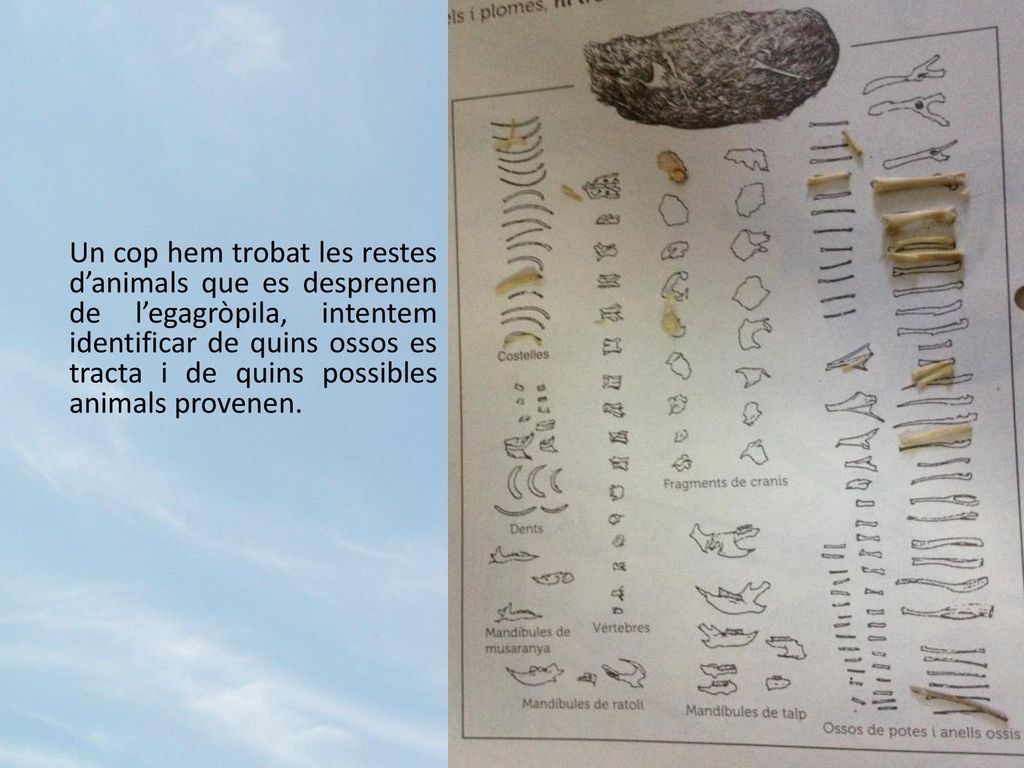 Un cop hem trobat les restes
d’animals que es desprenen
de l’egagròpila, intentem
identificar de quins ossos es
tracta i de quins possibles
animals provenen.
i plomes,
Costelles
Fragments de cranis
Dents
Mandíbules de
musaranya
Vértebres
Mandíbules de ratolí
Mandíbules de talp
Ossos de potes i anells ossis